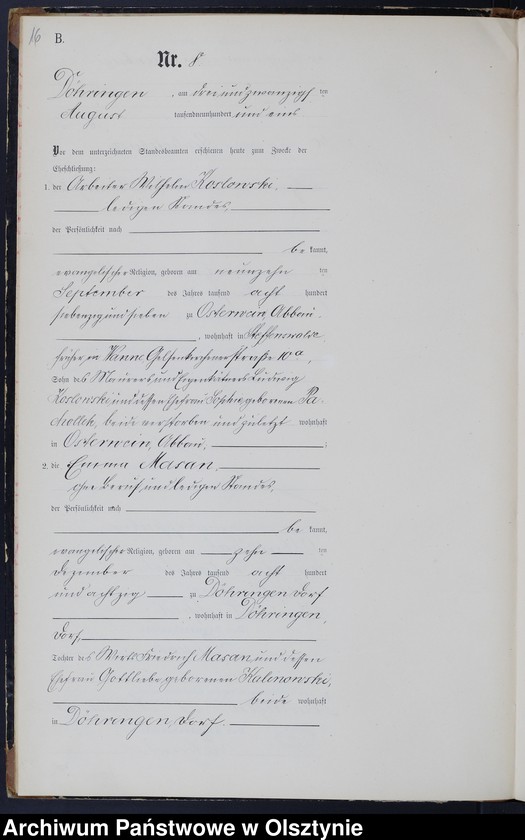 16
B.
Nr. 8
Döhringen, am dreiundzwanzigsten
August tausendneunhundert und eins
Vor dem unterzeichneten Standesbeamten erschienen heute zum Zwecke der
Eheschließung:
1. der Arbeiter Wilhelm Koslowski,
ledigen Standes,
der Persönlichkeit nach
bekannt,
evangelischer Religion, geboren am neunzehnten
September des Jahres tausend acht hundert
siebenzig und sieben zu Osterwein, Abbau
, wohnhaft in Steffenswalde,
früher in Wanne, Gelsenkirchenerstraße 10a,
Sohn des Maurers und Eigenkätners Ludwig
Koslowski und dessen Ehefrau Sophie geborenen
beide verstorben und zuletzt wohnhaft
in Osterwein, Abbau, ;
2. die Emma Masan,
ohne Beruf und ledigen Standes,
der Persönlichkeit nach
bekannt,
evangelischer Religion, geboren am zehnten
Dezember des Jahres tausend acht hundert
und achtzig zu Döhringen Dorf
, wohnhaft in Döhringen,
Dorf,
Tochter des Wirts Friedrich Masan und dessen
Ehefrau Gottliebe, geborenen Kalinowski,
beide wohnhaft
in Döhringen, Dorf.
Archiwum Państwowe w Olsztynie